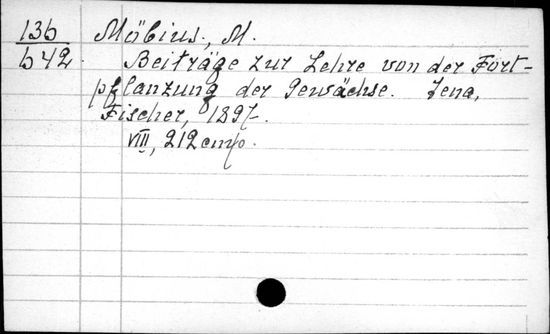 136 Möbius, M.
b42. Beiträge zur Lehre von der Fort-
pflanzung der Gewächse. Jena,
Fischer, 1897.
VIII, 212 стр.